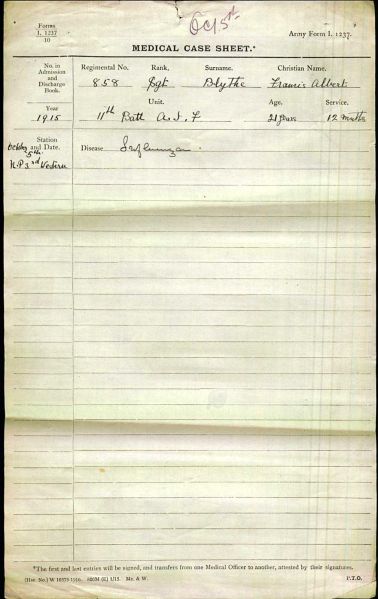 Forms
I. 1237
10
Oct 5th
Army Form I. 1237.
MEDICAL CASE SHEET.*
No. in Admission and Discharge Book.
Regimental No. Rank. Surname. Christian Name.
858 Sgt Blythe Francis Albert
Year Unit. Age. Service.
1915 11th Batt A.I.F 21 years 12 months
Station and Date.
October 5th
Disease Influenza
3rd Western
*The first and last entries will be signed, and transfers from one Medical Officer to another, attested by their signatures.
P.T.O.